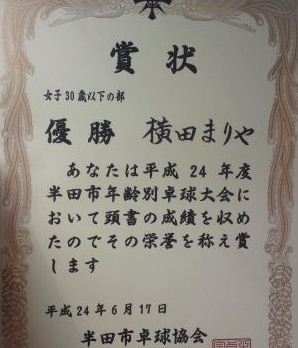 賞状
女子30歳以下の部
優勝 横田まりや
あなたは平成24年度
半田市年齢別卓球大会に
おいて頭書の成績を収め
たのでその栄誉を称え賞
します
平成24年6月17日
半田市卓球協会